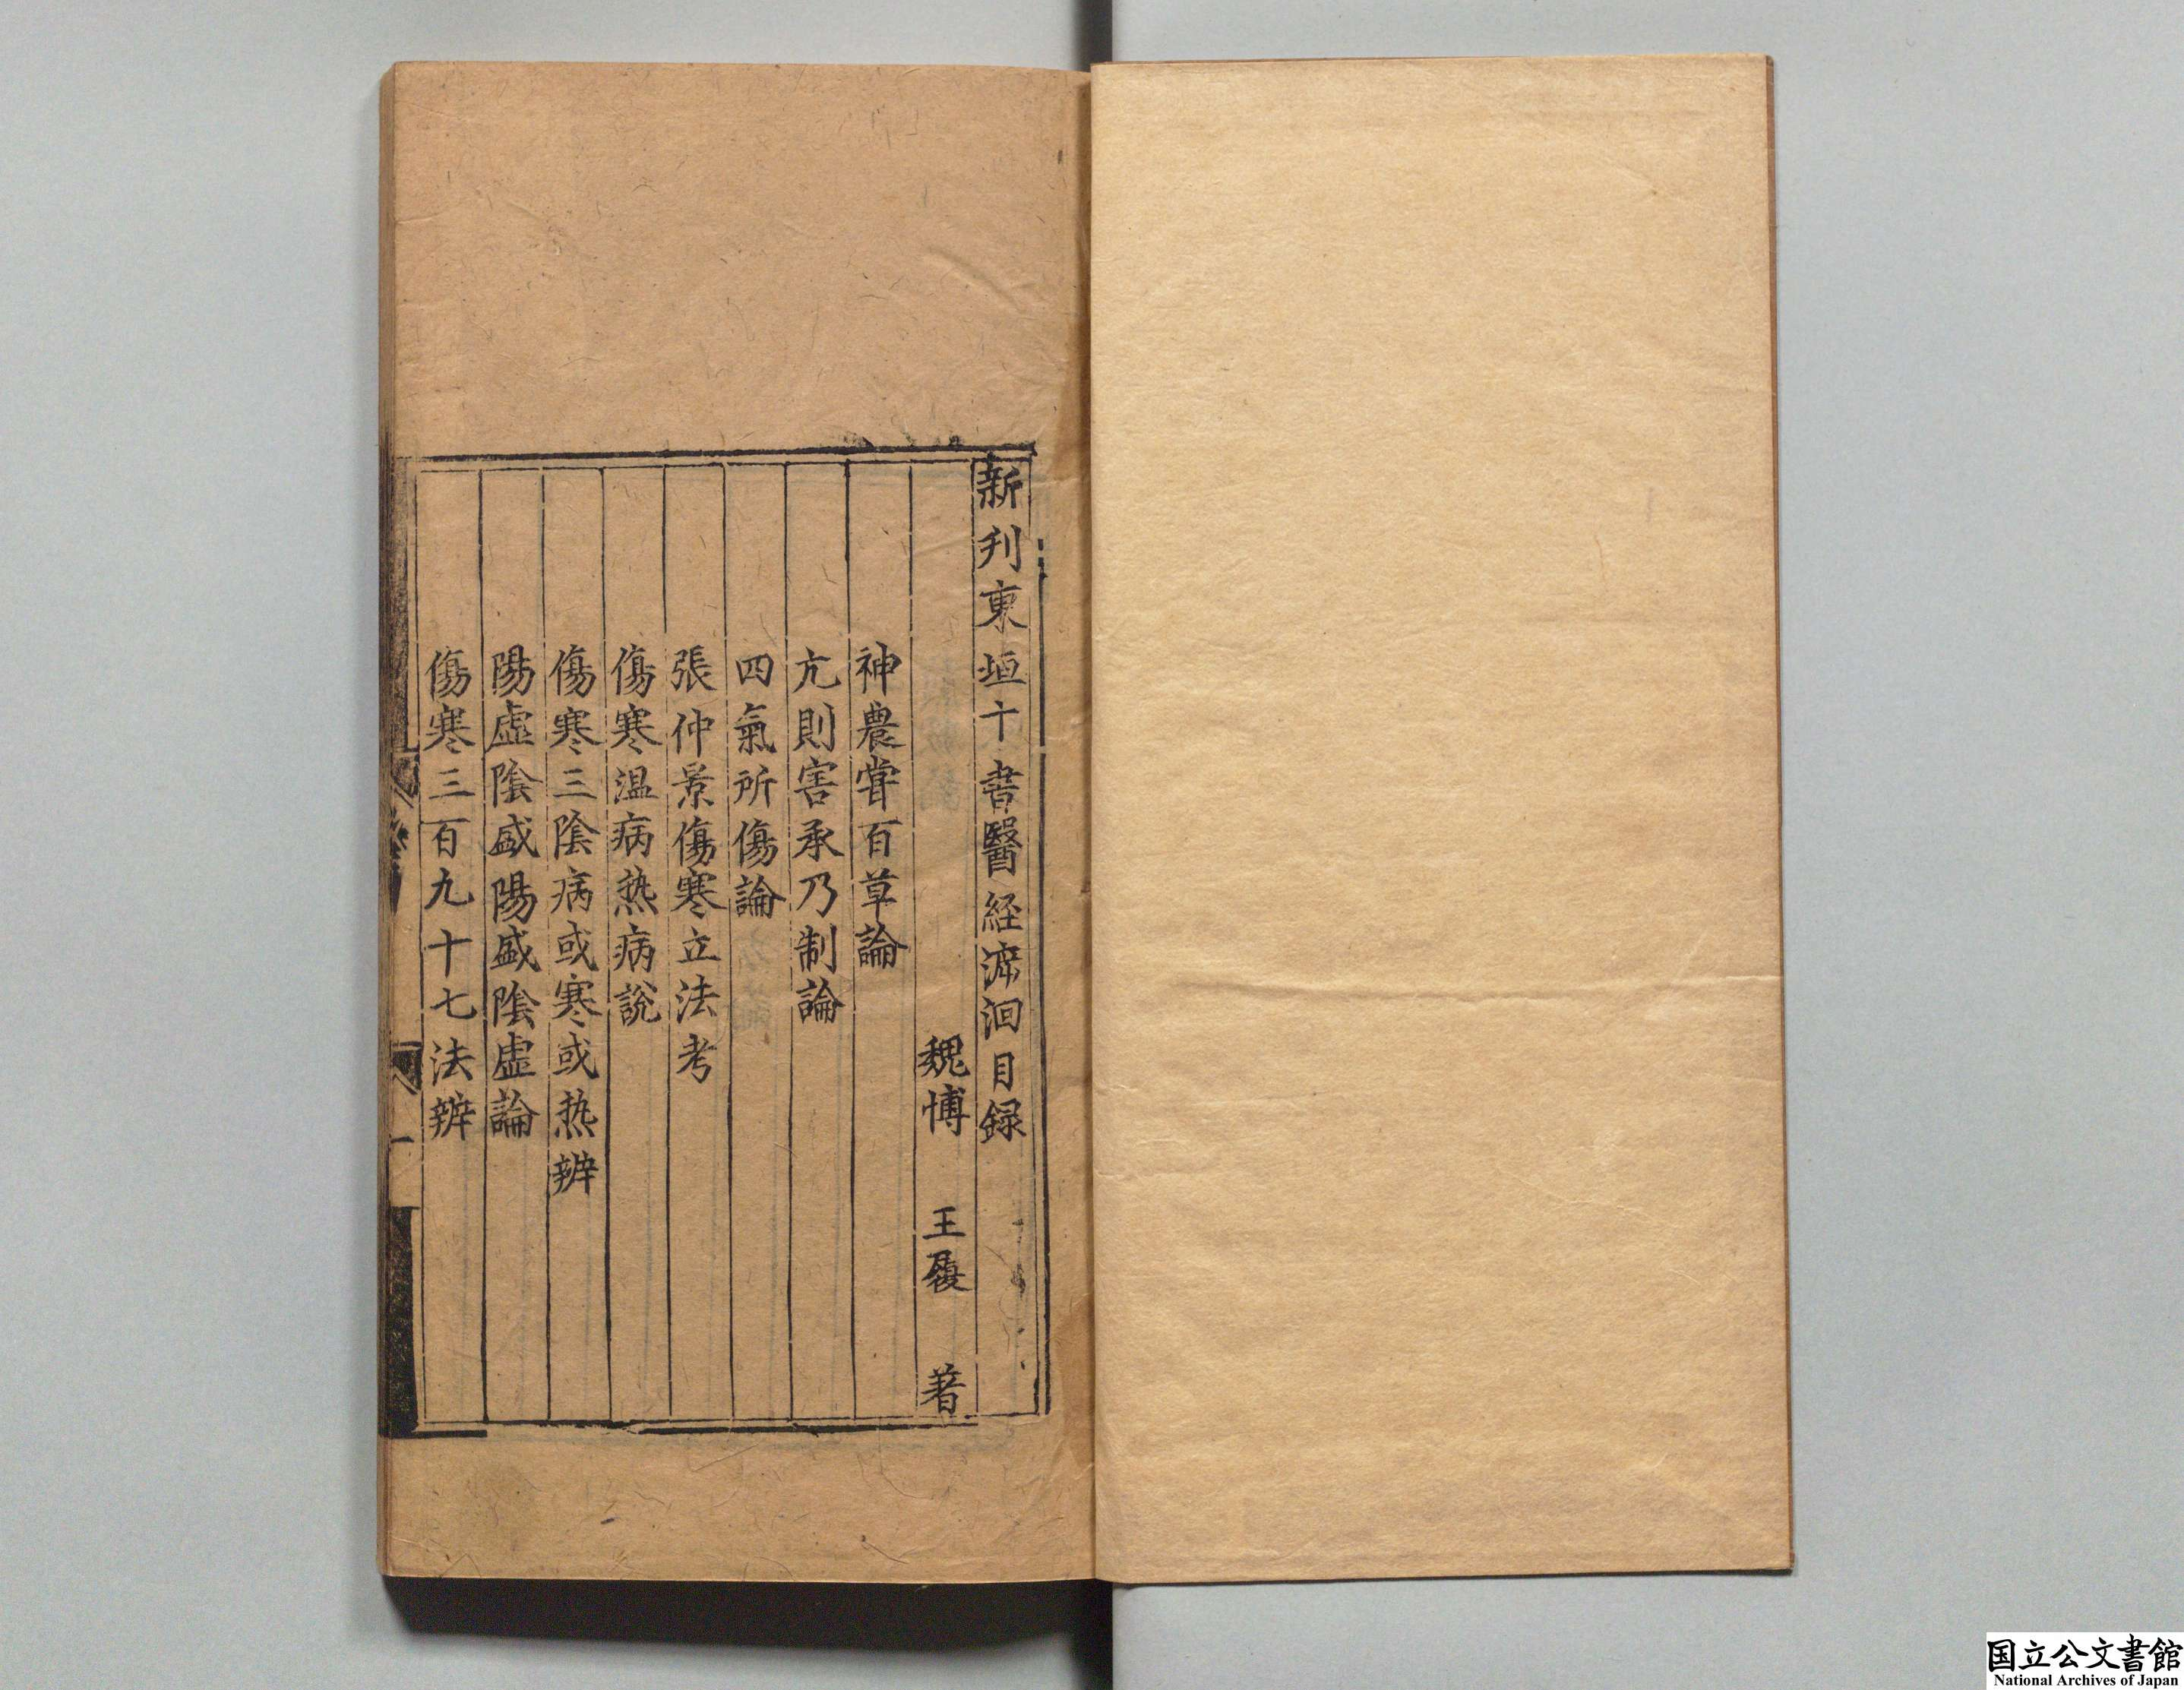 新刋東垣十書醫経溯洄目録
魏博 王履 著
神農甞百草論
亢則害承乃制論
四氣所傷論
張仲景傷寒立法考
傷寒温病热病說
傷寒三陰病或寒或热辨
陽虛陰盛陽盛陰虛論
傷寒三百九十七法辨
国立公文書館
National Archives of Japan